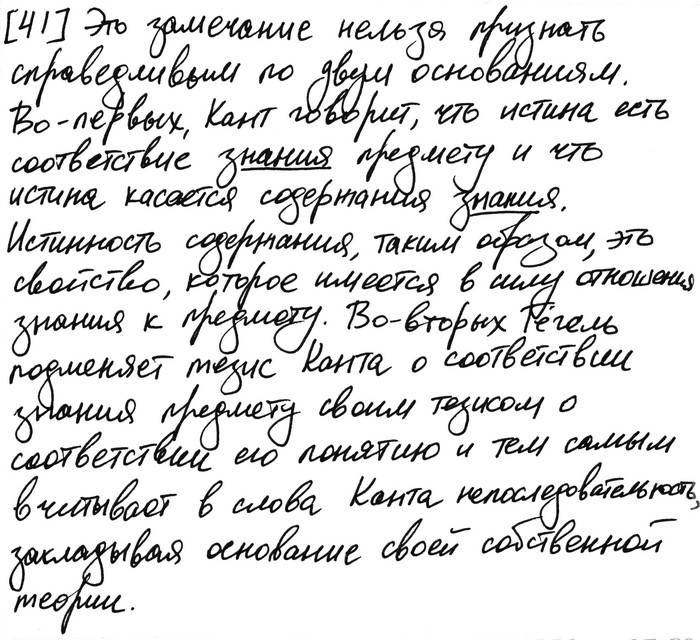 [41] Это замечание нельзя признать
справедливым по двум основаниям.
Во-первых, Кант говорит, что истина есть
соответствие знания предмету и что
истина касается содержания знания.
Истинность содержания, таким образом, это
свойство, которое имеется в силу отношения
знания к предмету. Во-вторых Гегель
подменяет тезис Канта о соответствии
знания предмету своим тезисом о
соответствии его понятию и тем самым
вчитывает в слова Канта непоследовательность,
закладывая основание своей собственной
теории.